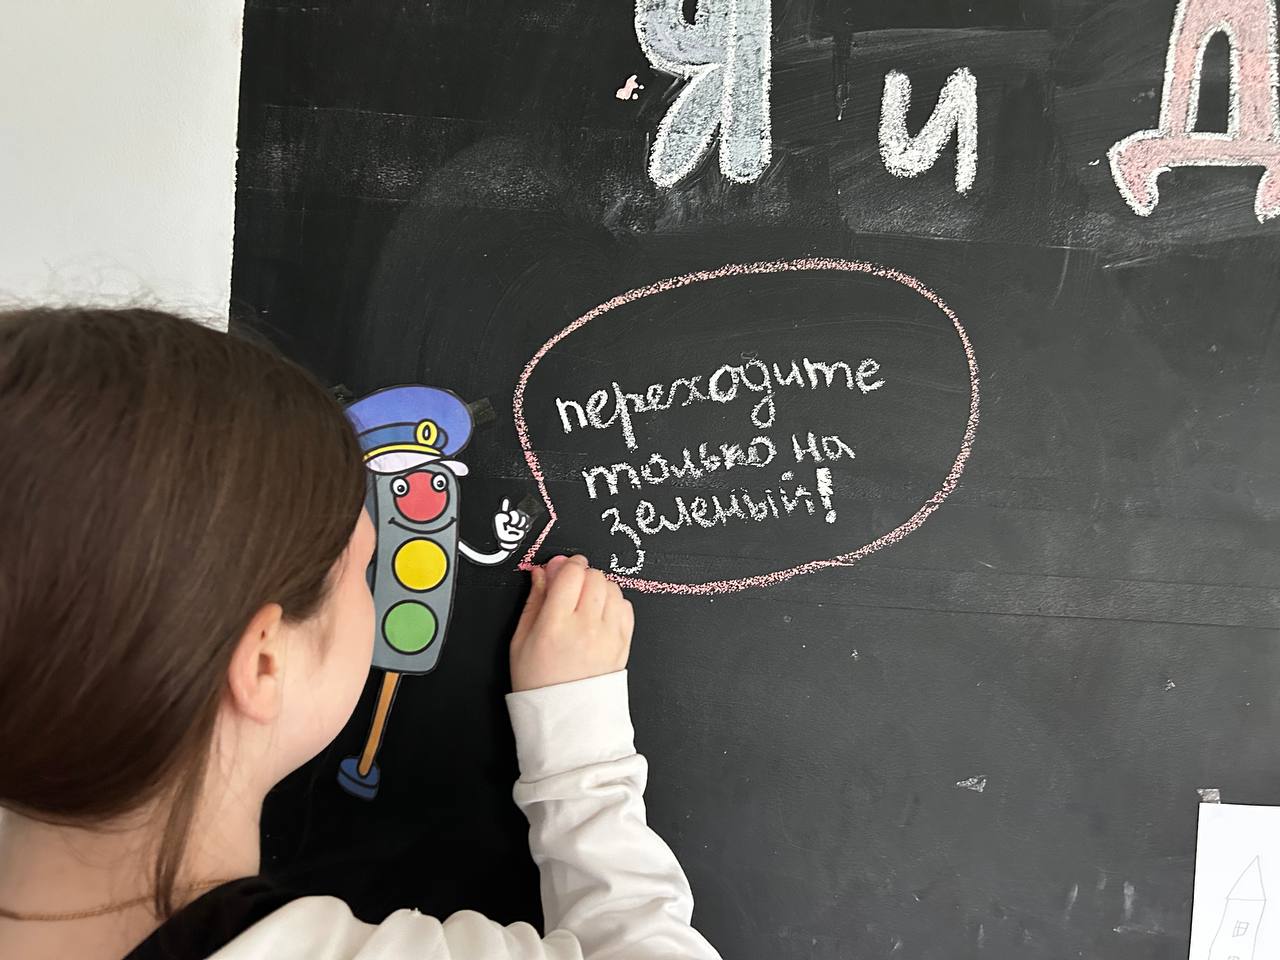 Я и Д
переходите
только на
зеленый!